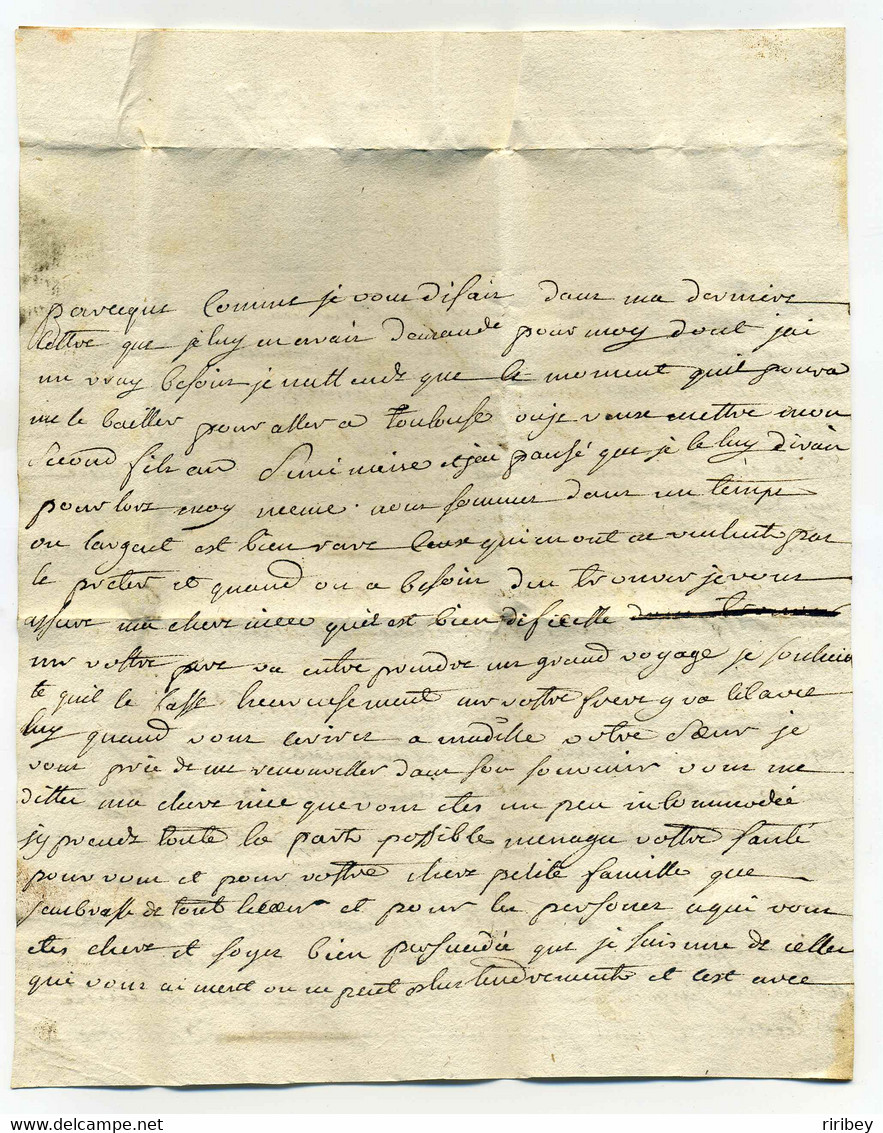 parceque comme je vous disait dans ma derniere
lettre que je luy en avair demandé pour moy dont jai
un vray besoin je nattends que le moment quil poura
me le bailler pour aller a toulouse ou je veux mettre mon
second fils au seminaire et jai pansé que je le luy dirair
pour lors moy meme. nous sommes dans un temps
ou largent est bien rare ceux qui en ont ne veulents pas
le preter et quand on a besoin den trouver je vous
assure ma chere niece quil est bien dificille
mr vottre pere va entreprendre un grand voyage je souhai
te quil le fasse heureusement mr vottre frere y va til avec
luy quand vous ecrires a madlle votre sœur je
vous prie de me renouveller dans son souvenir vous me
dittes ma chere niece que vous etes un peu incommodée
jy prends toute la part possible menages vottre santé
pour vous et pour vottre chere petite famille que
jembrasse de tout le cœur et pour les personnes a qui vous
etes chere et soyes bien persuadée que je suis une de celles
qui vous aiment on ne peut plus tendrements et cest avec
riribey